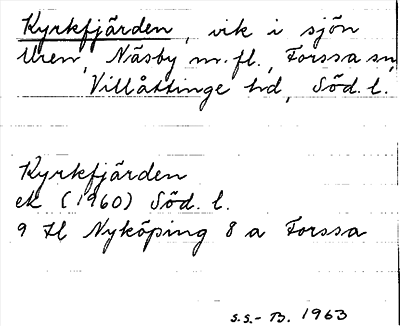 Kyrkfjärden, vik i sjön
Uren, Näsby m.fl., Forssa sn,
Villåttinge hd, Söd. l.
Kyrkfjärden
ek (1960) Söd. l.
9 H Nyköping 8 a Forssa
S.S.-B. 1963